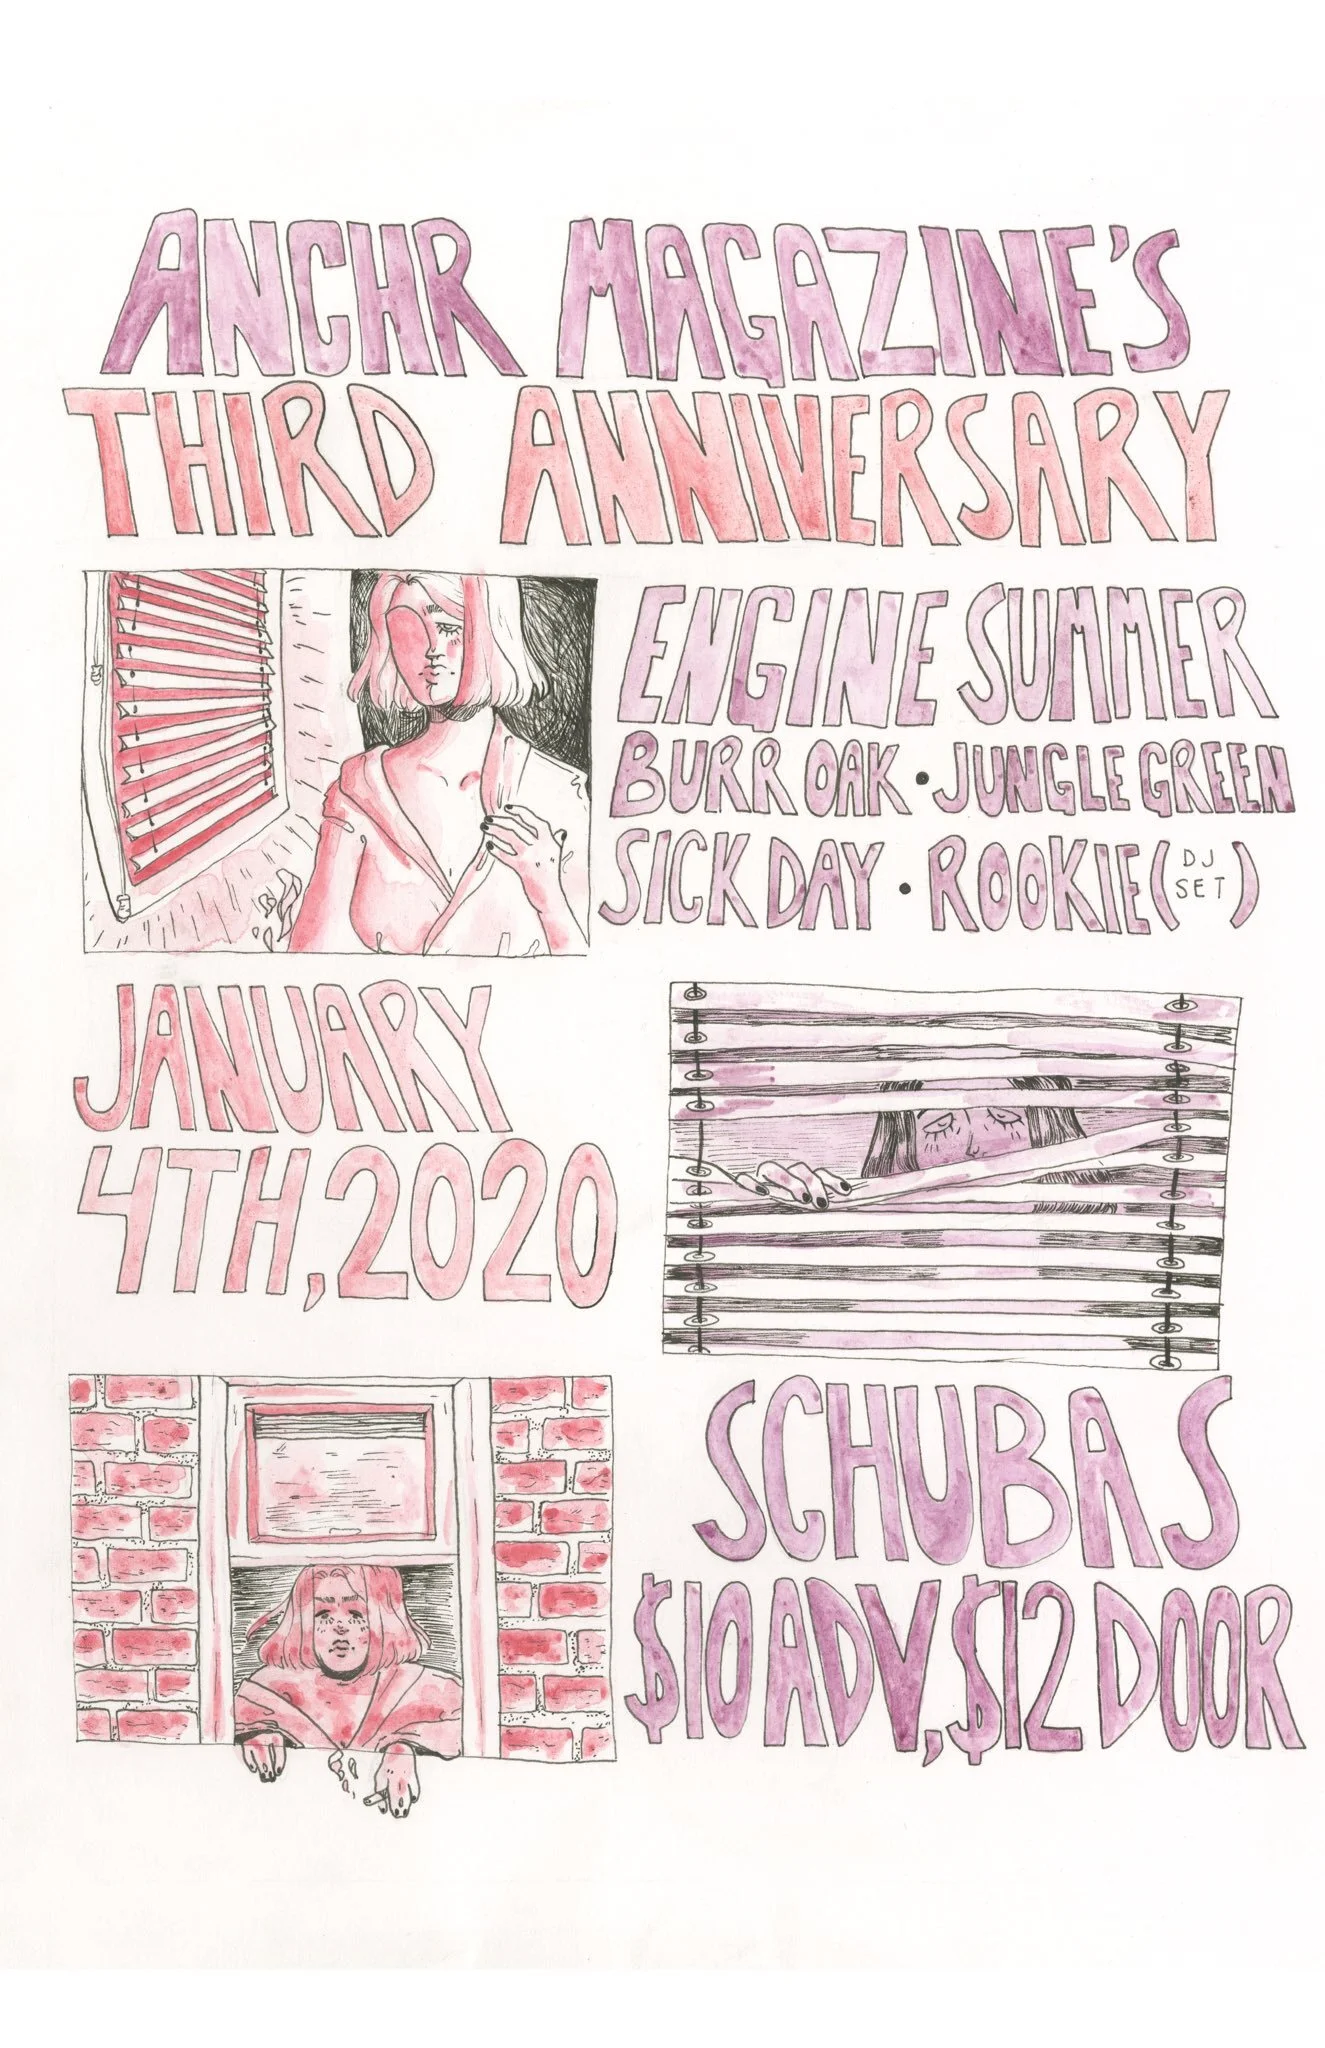 ANCHR MAGAZINE'S
THIRD ANNIVERSARY
ENGINE SUMMER
BURR OAK • JUNGLE GREEN
SICK DAY • ROOKIE (DJ SET)
JANUARY
4TH, 2020
SCHUBAS
$10 ADV, $12 DOOR